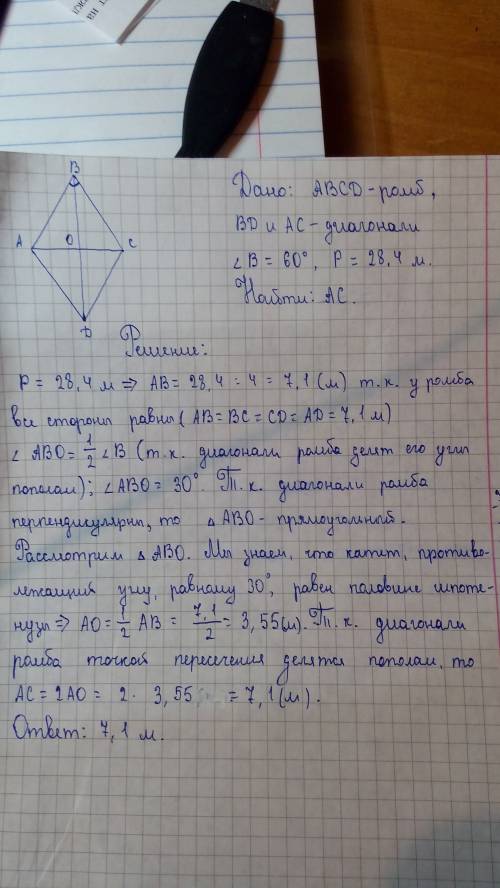 B
A
O
C
D
Дано: ABCD - ромб,
BD и AC - диагонали
∠B = 60°, P = 28,4 м.
Найти: AC.
Решение:
P = 28,4 м ⇒ AB = 28,4 : 4 = 7,1 (м) т.к. у ромба
все стороны равны (AB = BC = CD = AD = 7,1 м)
∠ABO = 1/2 ∠B (т.к. диагонали ромба делят его углы
пополам); ∠ABO = 30°. Т.к. диагонали ромба
перпендикулярны, то △ABO - прямоугольный.
Рассмотрим △ABO. Мы знаем, что катет, противо-
лежащий углу, равному 30°, равен половине гипоте-
нузы ⇒ AO = 1/2 AB = 7,1/2 = 3,55 (м). Т.к. диагонали
ромба точкой пересечения делятся пополам, то
AC = 2AO = 2 · 3,55 = 7,1 (м).
Ответ: 7,1 м.